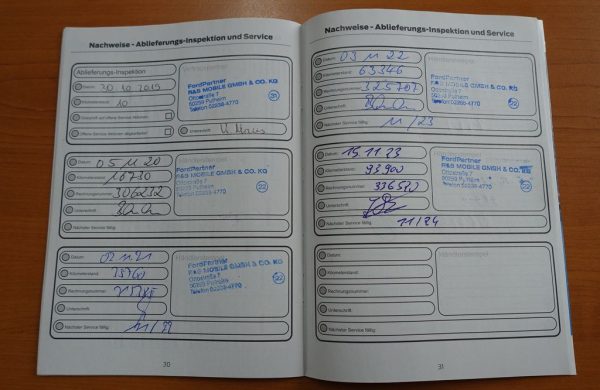 Nachweise - Ablieferungs-Inspektion und Service
Ablieferungs-Inspektion
Datum: 30 10 2019
Kilometerstand: 10
Unterschrift
FordPartner
R&S MOBILE GMBH & CO. KG
Ottostraße 7
50259 Pulheim
Telefon 02238-4770
Datum: 05 11 20
Kilometerstand:
Rechnungsnummer: 306232
Unterschrift
Nächster Service fällig:
FordPartner
R&S MOBILE GMBH & CO. KG
Ottostraße 7
50259 Pulheim
Telefon 02238-4770
22
Datum: 02 11 21
Kilometerstand:
Rechnungsnummer:
Unterschrift
Nächster Service fällig: 11/22
Händlerstempel
FordPartner
R&S MOBILE GMBH & CO. KG
Ottostraße 7
50259 Pulheim
Telefon 02238-4770
22
30
Nachweise - Ablieferungs-Inspektion und Service
Datum: 03 11 22
Kilometerstand: 63346
Rechnungsnummer: 325707
Unterschrift
Nächster Service fällig: 11/23
FordPartner
R&S MOBILE GMBH & CO. KG
Ottostraße 7
50259 Pulheim
Telefon 02238-4770
22
Datum: 15.11.23
Kilometerstand: 93.900
Rechnungsnummer:
Unterschrift
Nächster Service fällig: 11/24
Händlerstempel
FordPartner
R&S MOBILE GMBH & CO. KG
Ottostraße 7
50259 Pulheim
Telefon 02238-4770
22
Datum:
Kilometerstand:
Rechnungsnummer:
Unterschrift:
Nächster Service fällig:
Händlerstempel
31